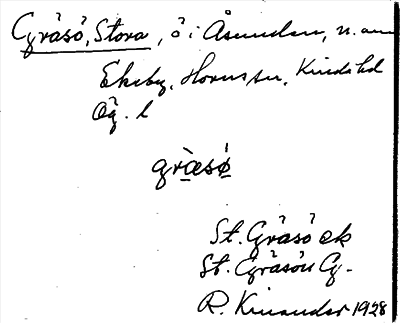 Gräsö, Stora, ö i Åsunden, n. om
Ekeby, Hornsten, Kinds hd
Ög. l
græsø
St. Gräsö ek
St. Gräsön Gg.
R. Kinander 1928